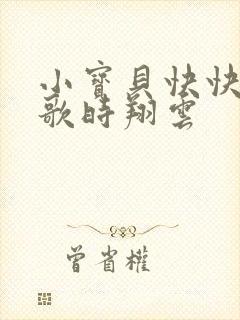 小寶貝快快
歌時翔雲
曾省權